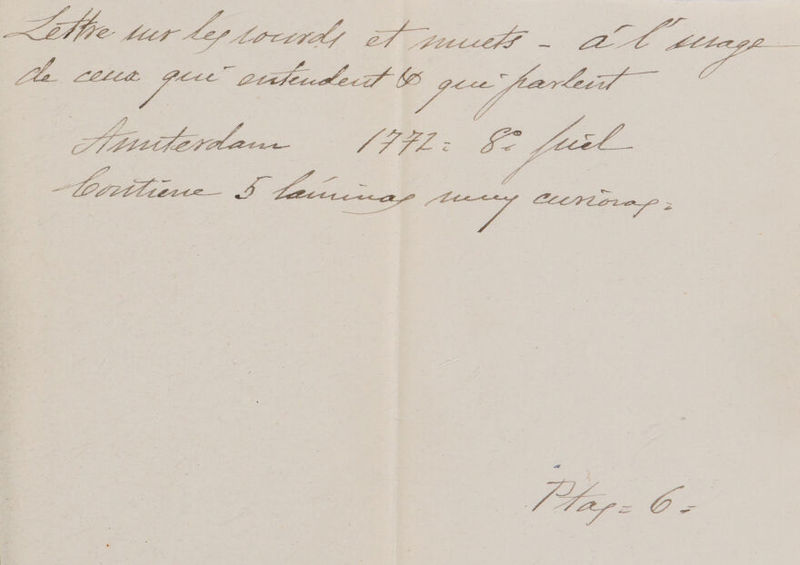 Lettre sur les sourds et muets - á l'usage
de ceux qui entendent & qui parlent
Amsterdam 1772 = 8º piel
Contiene 5 láminas muy curiosas =
Ptas = 6 =